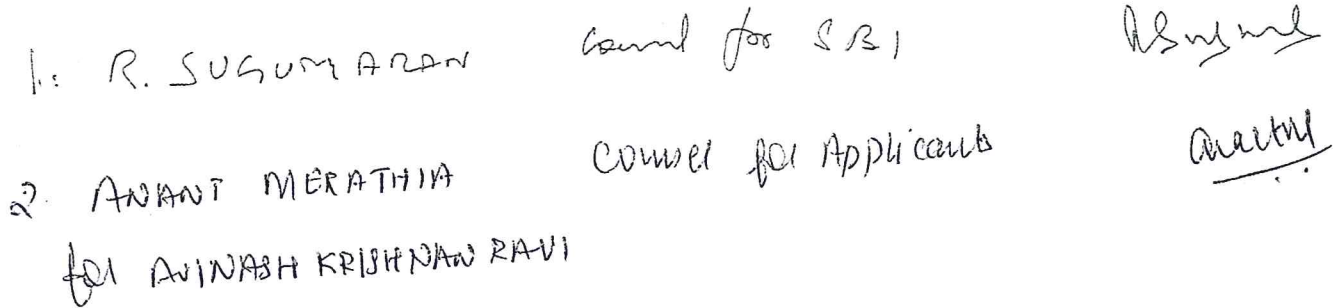 1. R. SUGUMARAN Counsel for SBI
2. ANANT MERATHIA Counsel for Applicants
for AVINASH KRISHNAN RAVI